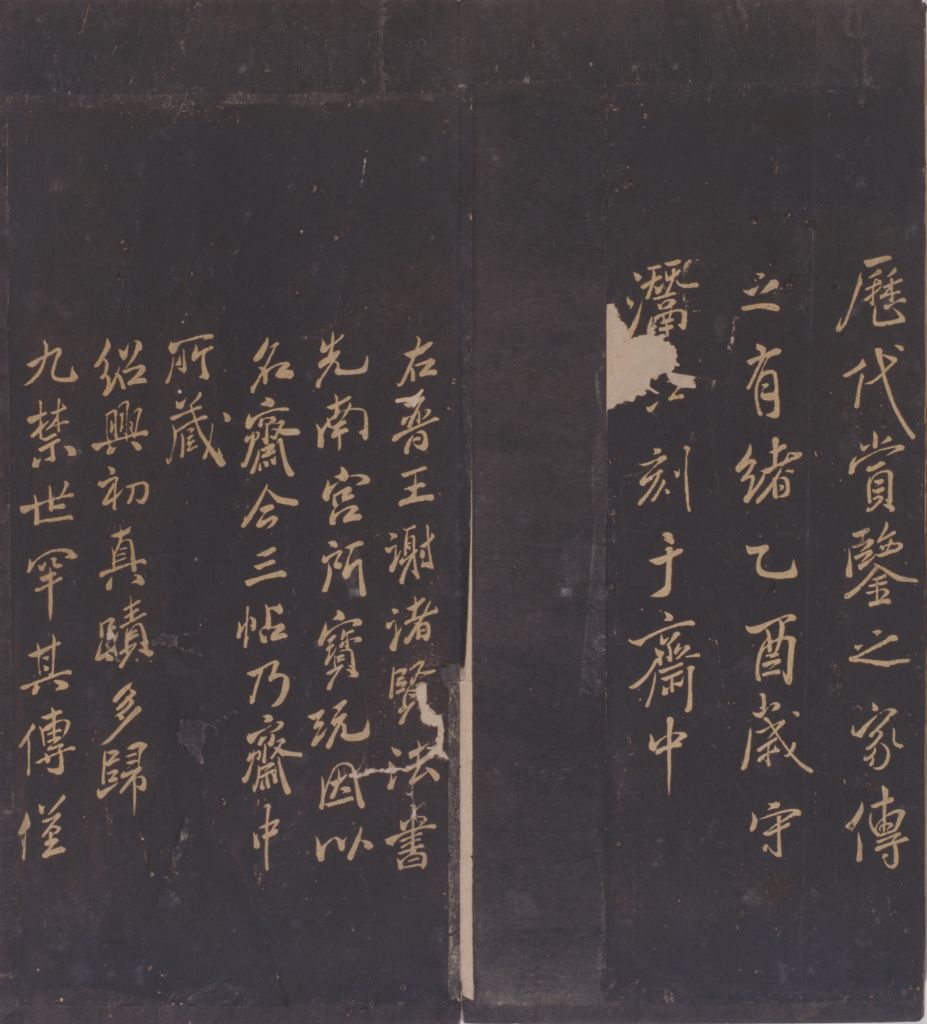 歷代賞鑒之家傳
之有緒乙酉歲守
灊刻于齋中
右晉王謝諸賢法書
先南宮所寶玩因以
名齋今三帖乃齋中
所藏
紹興初真蹟多歸
九禁世罕其傳僅